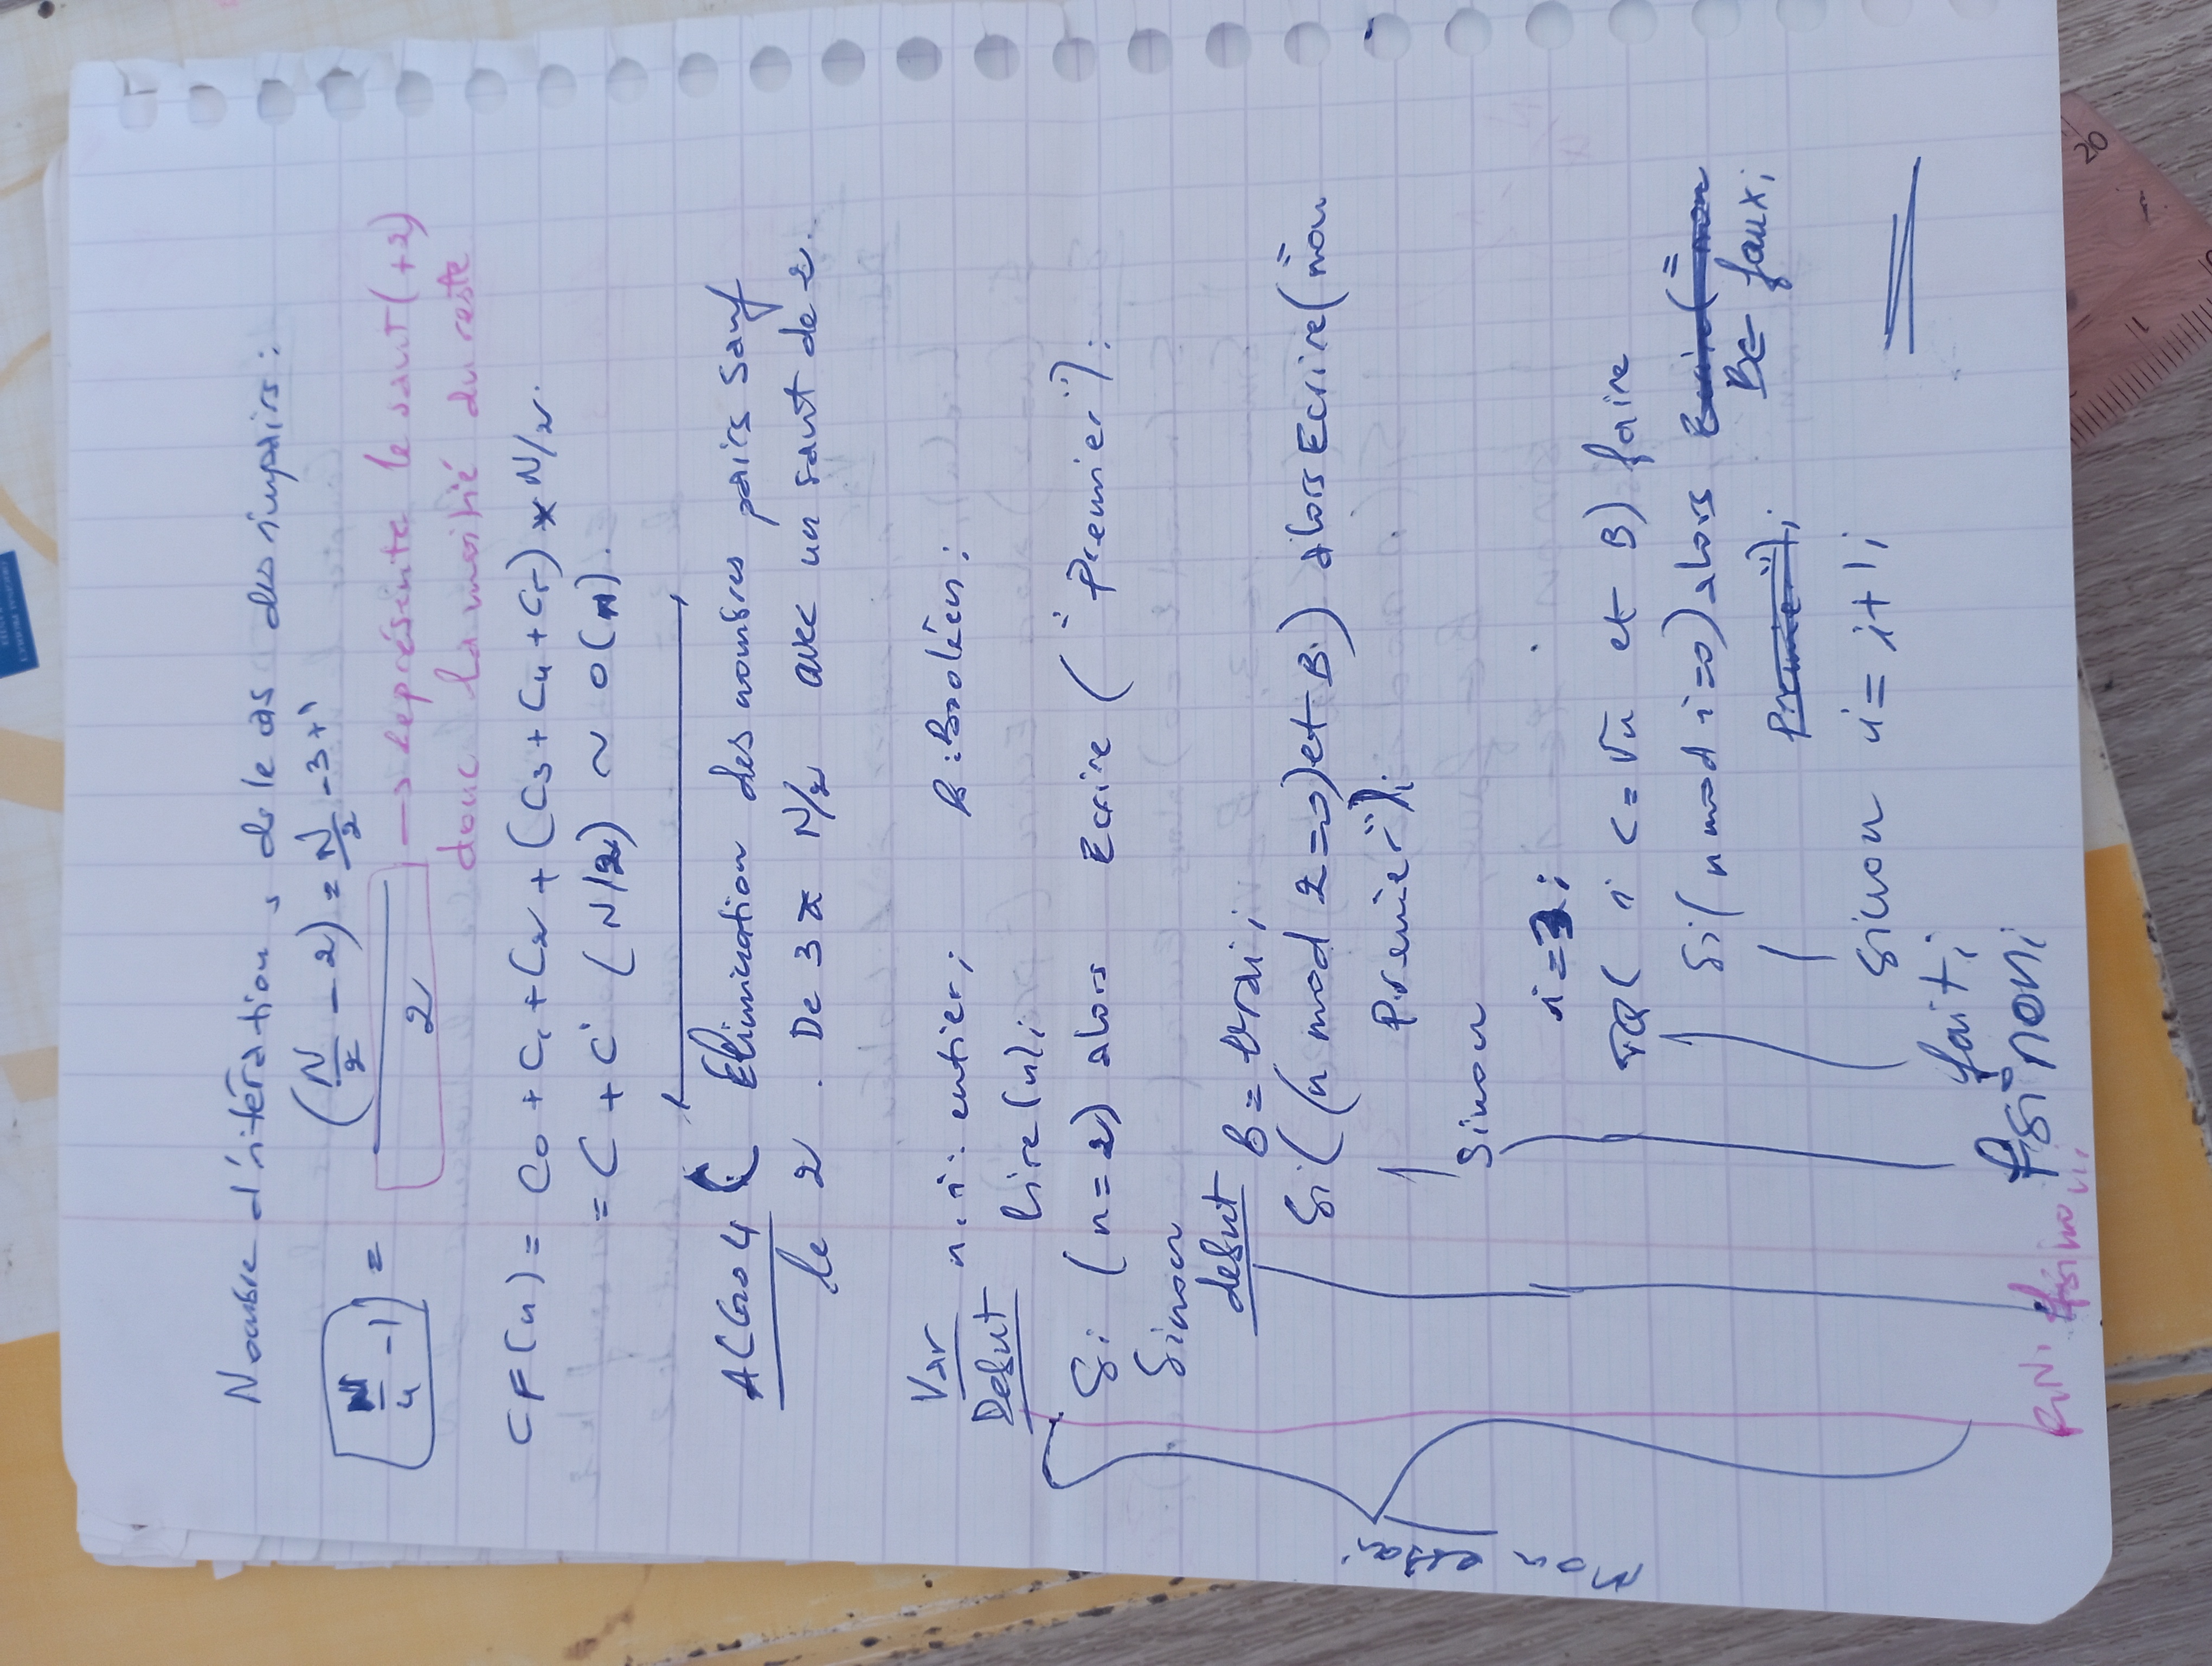 Nombre d'itérations de le cas des impairs :
(N/2 - 2) = N/2 - 3 + 1
(N/4 - 1) =
2
→ représente le saut (+2)
donc la moitié du reste
CF(n) = C0 + C1 + C2 + (C3 + C4 + C5) * N/2.
= C + C' (N/2) ~ O(n).
ALGO 4 ( Elimination des nombres pairs sauf
le 2. De 3 à N/2 avec un saut de 2.
Var n, i : entier ; B : booléen ;
Debut
lire(n) ;
Si (n = 2) alors Ecrire ("Premier") ;
Sinon
debut B = vrai ;
Si ((n mod 2 = 0) et B) alors Ecrire ("non
Premier") ;
Sinon
i = 3 ;
TQ ( i <= √n et B) faire
Si (n mod i = 0) alors Ecrire ("non
Premier") ;
B = faux ;
Sinon i = i + 1 ;
fait ;
fsinon ;
fsinon ;
Mon essai